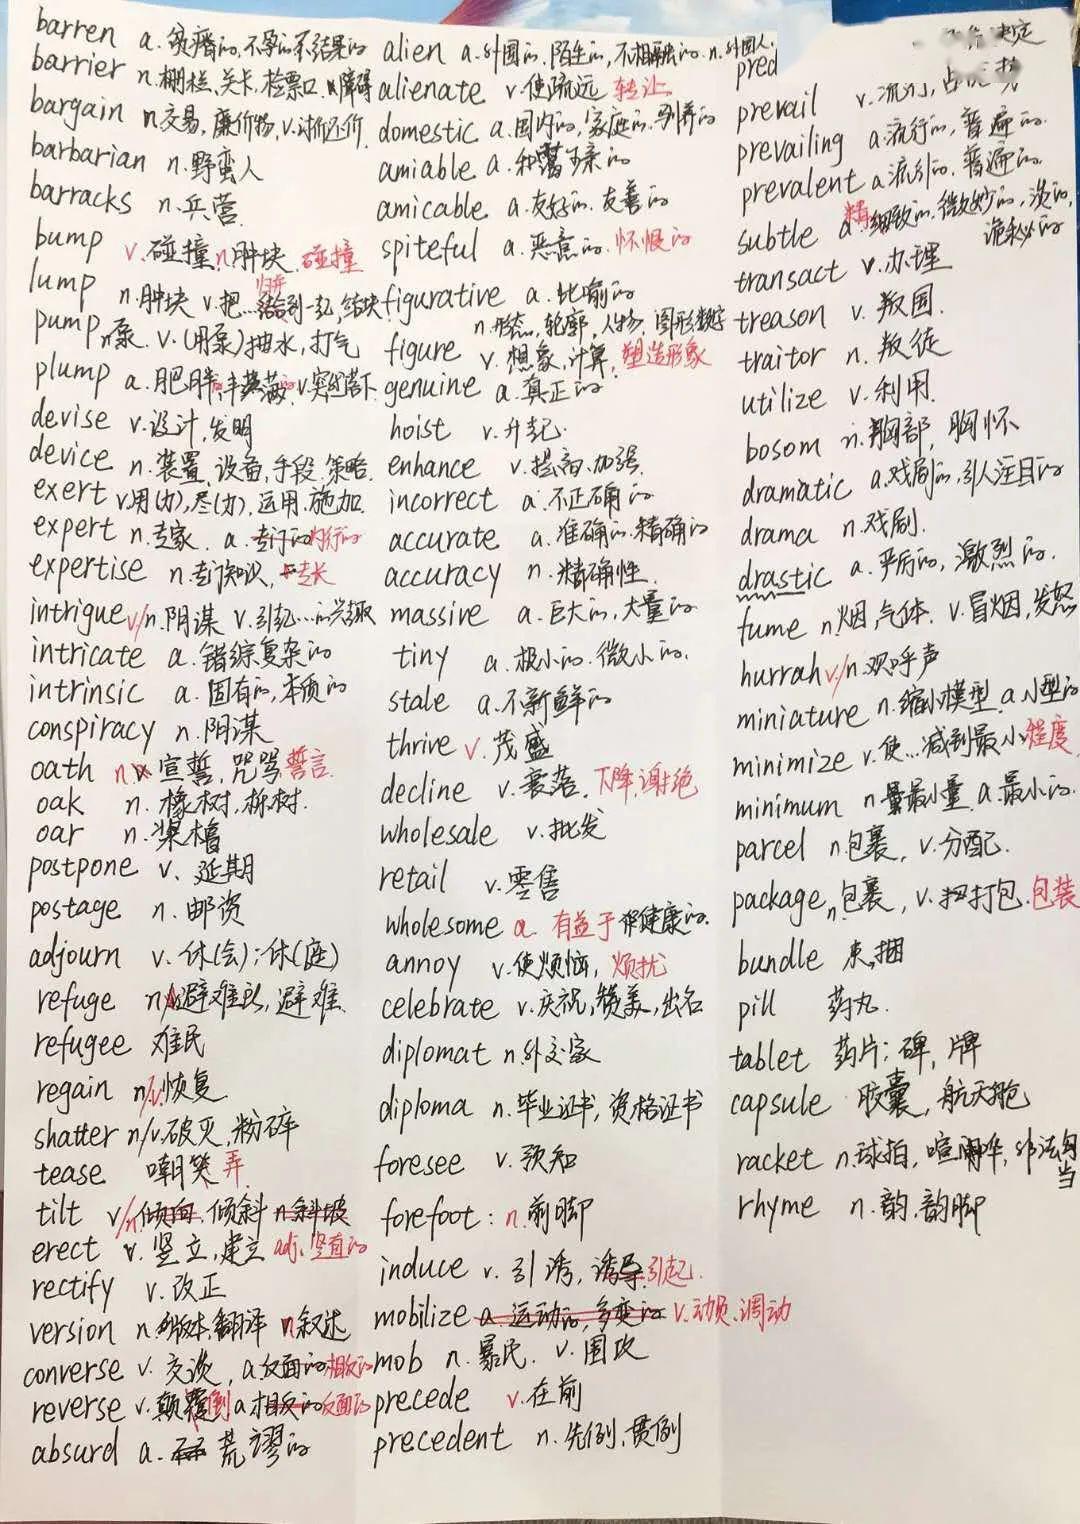 barren a. 贫瘠的,不孕的不结果的
barrier n.栅栏,关卡,检票口,障碍
bargain n.交易,廉价物,v.讨价还价
barbarian n.野蛮人
barracks n.兵营
bump v.碰撞,n.肿块.碰撞
lump n.肿块 v.把…归并到一起,结块
pump n.泵. v.(用泵)抽水,打气
plump a.肥胖的丰满的 v.突然落下
devise v.设计,发明
device n.装置,设备,手段,策略.
exert v.用(力),尽(力),运用.施加.
expert n.专家. a.专门的内行的
expertise n.专门知识,专长
intrigue v/n.阴谋 v.引起…的兴趣
intricate a.错综复杂的
intrinsic a.固有的,本质的
conspiracy n.阴谋
oath n.宣誓,咒骂,誓言.
oak n.橡树.栎树.
oar n.桨橹
postpone v.延期
postage n.邮资
adjourn v.休(会);休(庭)
refuge n.避难所,避难.
refugee 难民
regain n/v.恢复
shatter n/v.破灭,粉碎
tease 嘲笑弄
tilt v/n.倾向.倾斜 n.斜坡
erect v.竖立,建立 adj.竖直的
rectify v.改正
version n.版本.翻译 n.叙述
converse v.交谈,a.反面的相反的
reverse v.颠覆倒 a.相反的反面的
absurd a.荒谬的
alien a.外国的.陌生的,不相融的.n.外国人.
alienate v.使疏远 转让.
domestic a.国内的,家庭的.驯养的
amiable a.和蔼可亲的
amicable a.友好的.友善的
spiteful a.恶意的.怀恨的
figurative a.比喻的
n.形态,轮廓,人物.图形数字
figure v.想象,计算,塑造形象
genuine a.真正的.
hoist v.升起.
enhance v.提高.加强.
incorrect a.不正确的
accurate a.准确的.精确的
accuracy n.精确性.
massive a.巨大的,大量的
tiny a.极小的.微小的.
stale a.不新鲜的
thrive v.茂盛
decline v.衰落.下降,谢绝
wholesale v.批发
retail v.零售
wholesome a.有益于健康的.
annoy v.使烦恼,烦扰
celebrate v.庆祝,赞美,出名
diplomat n.外交家
diploma n.毕业证书,资格证书
foresee v.预知
forefoot: n.前脚
induce v.引诱,诱导.引起.
mobilize a.运动的,多变的 v.动员.调动
mob n.暴民. v.围攻
precede v.在前
precedent n.先例,惯例
决定
pred
prevail v.流行,占
prevailing a.流行的,普遍的.
prevalent a.流行的.普遍的.
subtle a.精细致的.微妙的,淡的,
诡秘的
transact v.办理
treason v.叛国.
traitor n.叛徒
utilize v.利用.
bosom n.胸部,胸怀
dramatic a.戏剧的,引人注目的
drama n.戏剧.
drastic a.严厉的,激烈的.
fume n.烟,气体. v.冒烟,发怒
hurrah v/n.欢呼声
miniature n.缩小模型.a.小型的
minimize v.使…减到最小程度
minimum n.最小量.a.最小的.
parcel n.包裹,v.分配.
package n.包裹,v.打包.包装
bundle 束,捆
pill 药丸.
tablet 药片;碑,牌
capsule 胶囊,航天舱
racket n.球拍,喧闹哗,非法勾
当
rhyme n.韵.韵脚